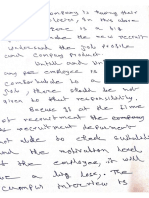 company is having their
In this above
there is a big
under the new recruit
understand the job profile
and company product.
Untill and
any employee is
comfortable to a
job, there should be not
given to that responsibility.
Because if at the time
of recruitment the company
recruitment department
not able to check suitability
and the motivation level
of the employee, it will
have a big loss. The
interview is